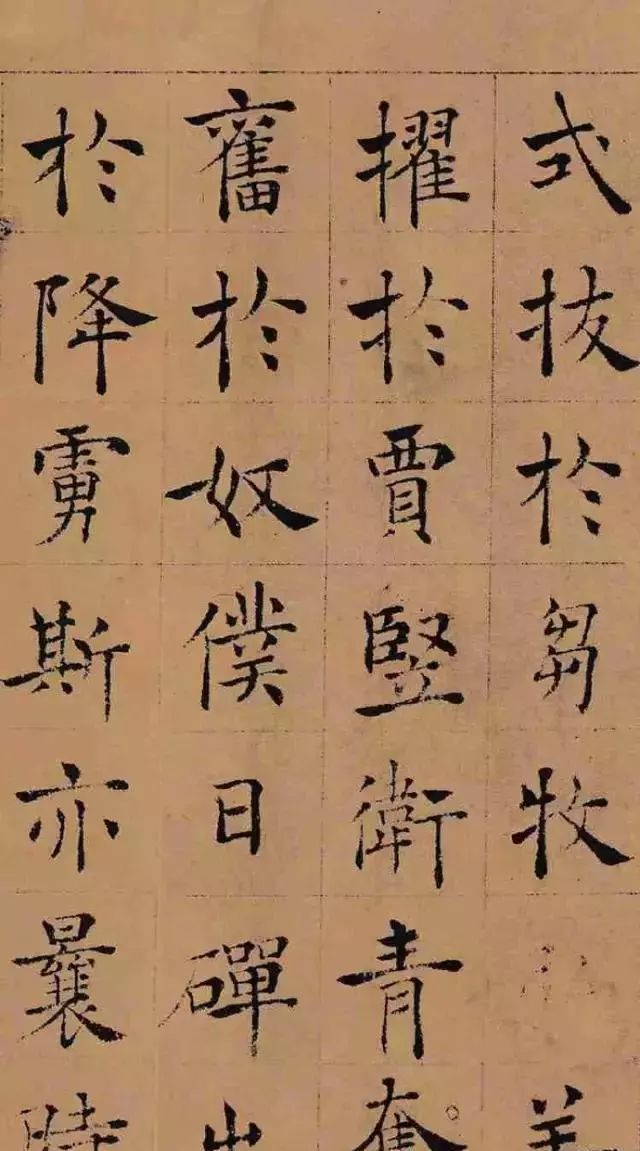 式拔於芻牧羊
擢於賈竪衛青
奮於奴僕日磾出
於降虜斯亦曩時